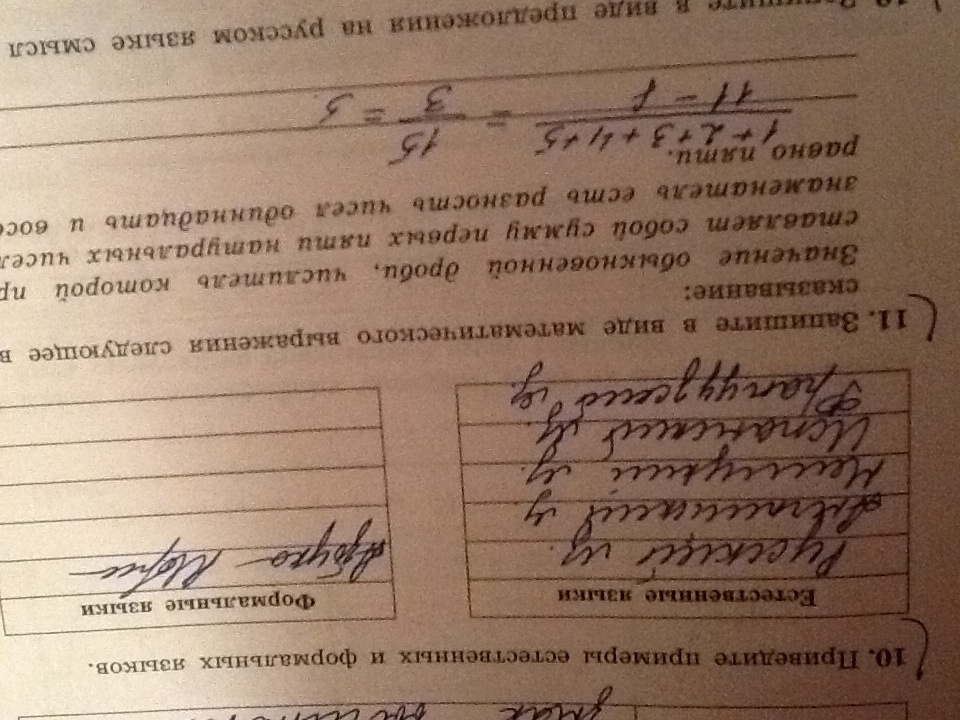 знак
10. Приведите примеры естественных и формальных языков.
Естественные языки
Формальные языки
Русский яз.
Азбука Морзе
Английский яз.
Немецкий яз.
Испанский яз.
Французский яз.
11. Запишите в виде математического выражения следующее в
сказывание:
Значение обыкновенной дроби, числитель которой пр
ставляет собой сумму первых пяти натуральных чисел
знаменатель есть разность чисел одиннадцать и вось
равно пяти.
1+2+3+4+5 15
= = 5.
11 – 8 3
в виде предложения на русском языке смысл